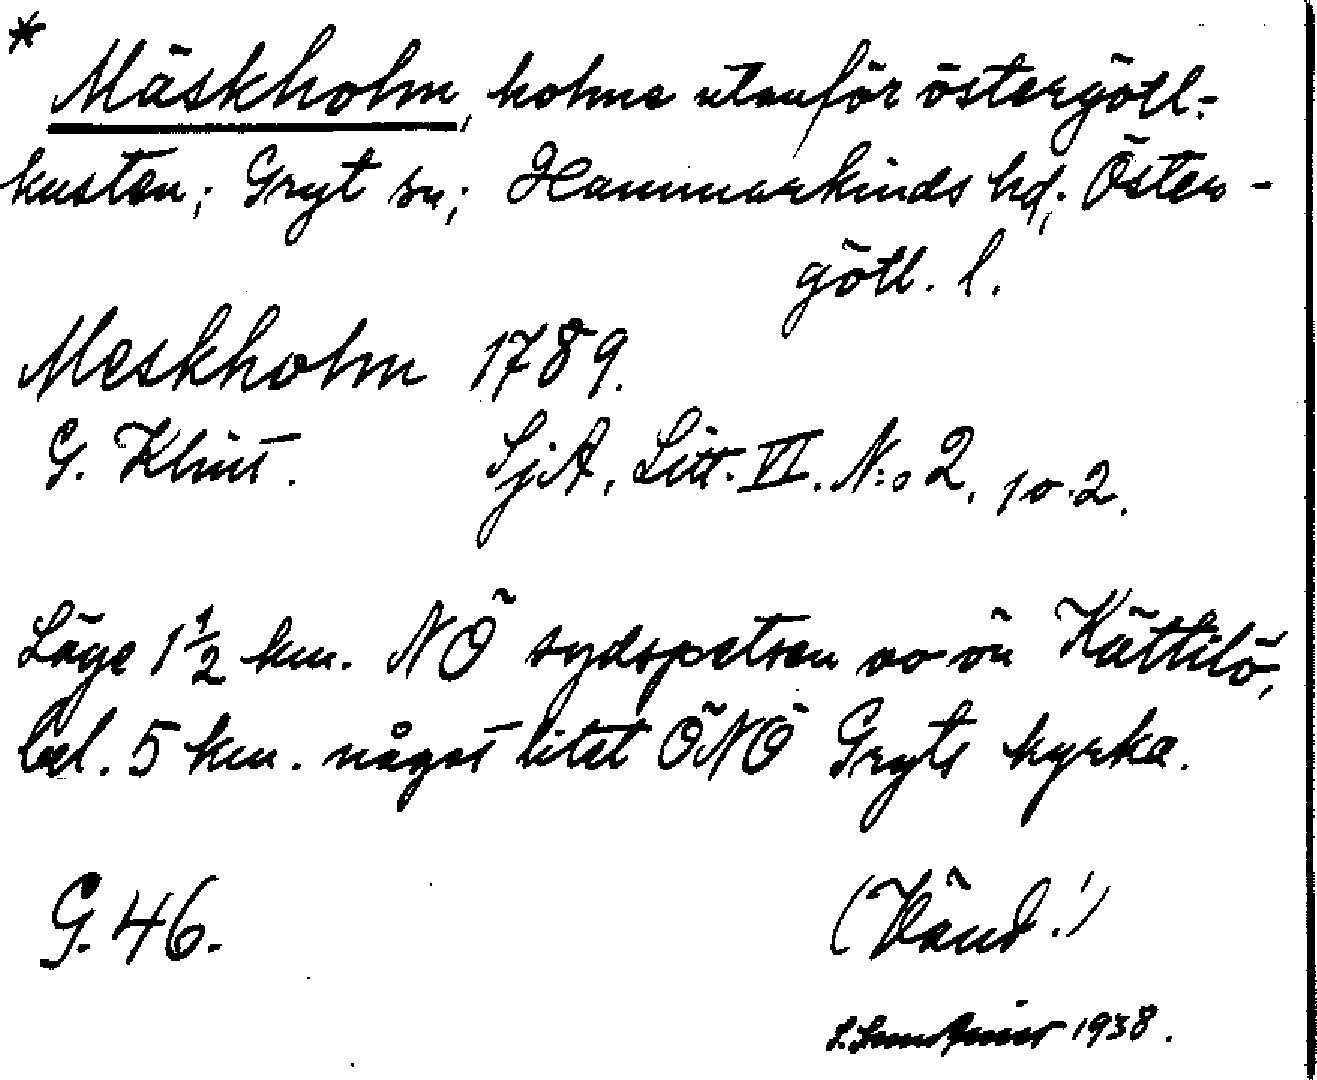 *
Mäskholm, holme utanför östergötl.-
kusten; Gryt sn; Hammarkinds hd; Öster-
götl. l.
Meskholm 1789.
G. Klint. SjA, Litt. VI. N:o 2, 10.2.
Läge 1 1/2 km. NÖ sydspetsen av ön Kättilö,
bel. 5 km. något litet ÖNÖ Gryts kyrka.
G. 46. (Vänd!)
1938.